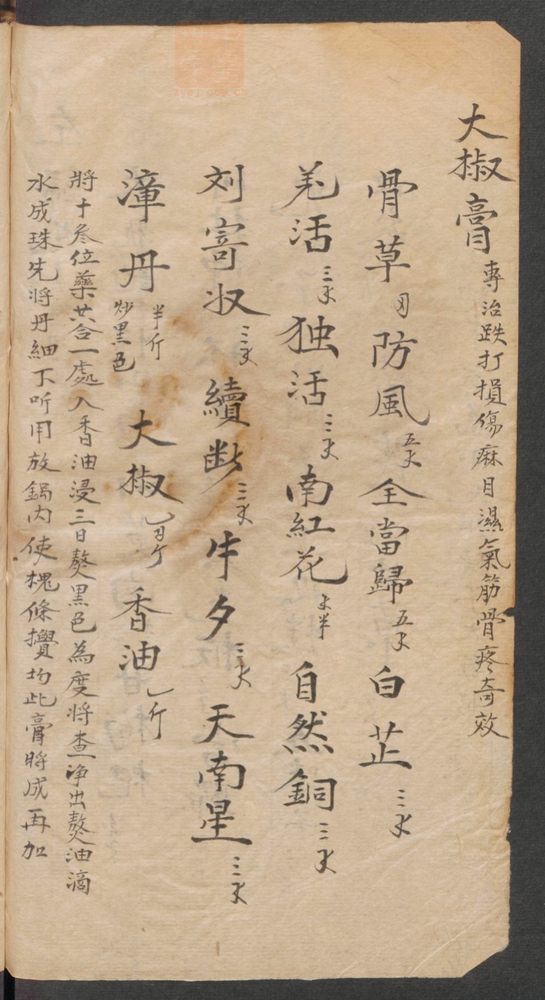 大椒膏 專治跌打損傷麻目濕氣筋骨疼奇效
骨草 防風 五 全當歸 五 白芷 三
羌活 三 独活 三 南紅花 半 自然銅 三
刘寄奴 三 續断 三 牛夕 三 天南星 三
漳丹 半斤 炒黑色 大椒 香油 斤
將十叁位藥共合一處入香油浸三日熬黑色為度將查净出熬油滴
水成珠先將丹細下听用放鍋内使槐條攪均此膏將成再加